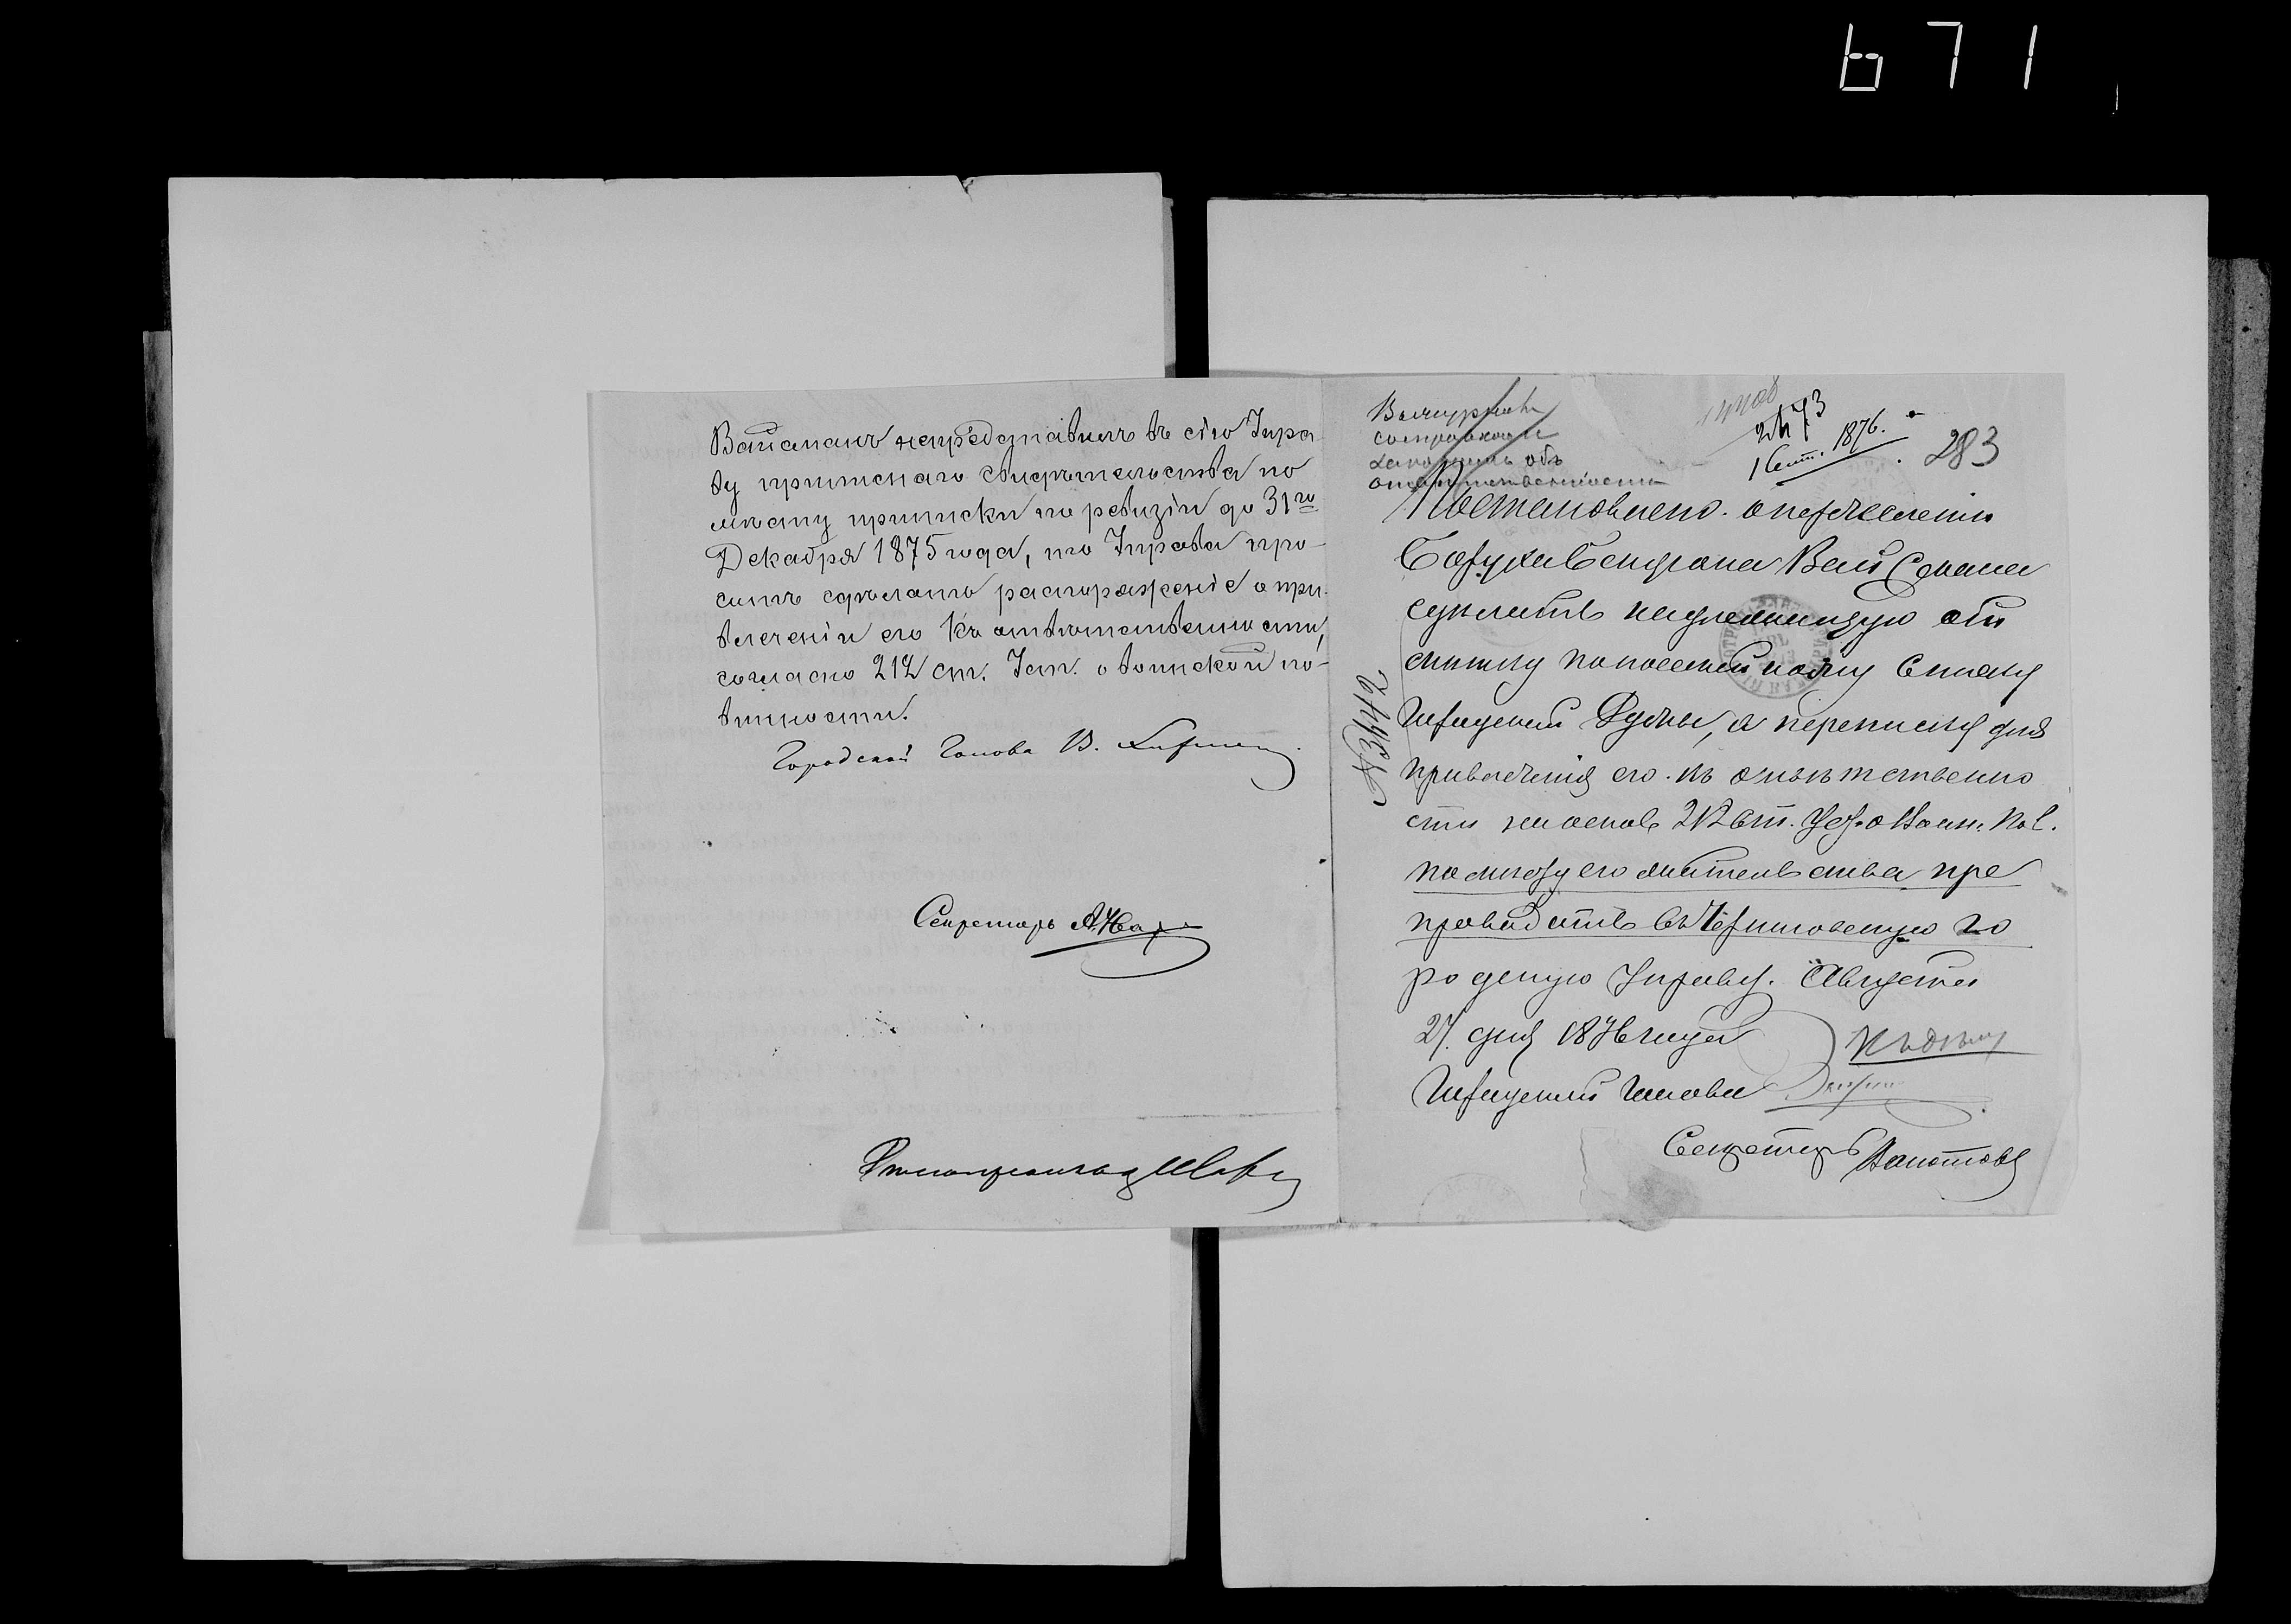 671
Вайсманъ непредставилъ въ сію Упра
ву приписнаго свидѣтельства по
мѣсту приписки по ревизіи до 31го
Декабря 1875 года, то Управа про-
ситъ сдѣлать распоряженіе о при-
влеченіи его къ отвѣтственности,
согласно 212 ст. Уст. о воинской по-
винности.
Городской Голова В.
Секретарь А.
283
1 Сент. 1876.
объ
Постановлено о перечисленіи
Боруха Бенціона Вайсмана
сдѣлать надлежащую от
мѣтку по посемейному списку
Думы, а переписку для
привлеченія его къ отвѣтственно
сти на основ. 212 ст. Уст. о Воин. Пов.
по мѣсту его жительства пре
проводить въ
родскую Управу. Августа
27 дня 1876 года
Голова
Секретарь
№3442